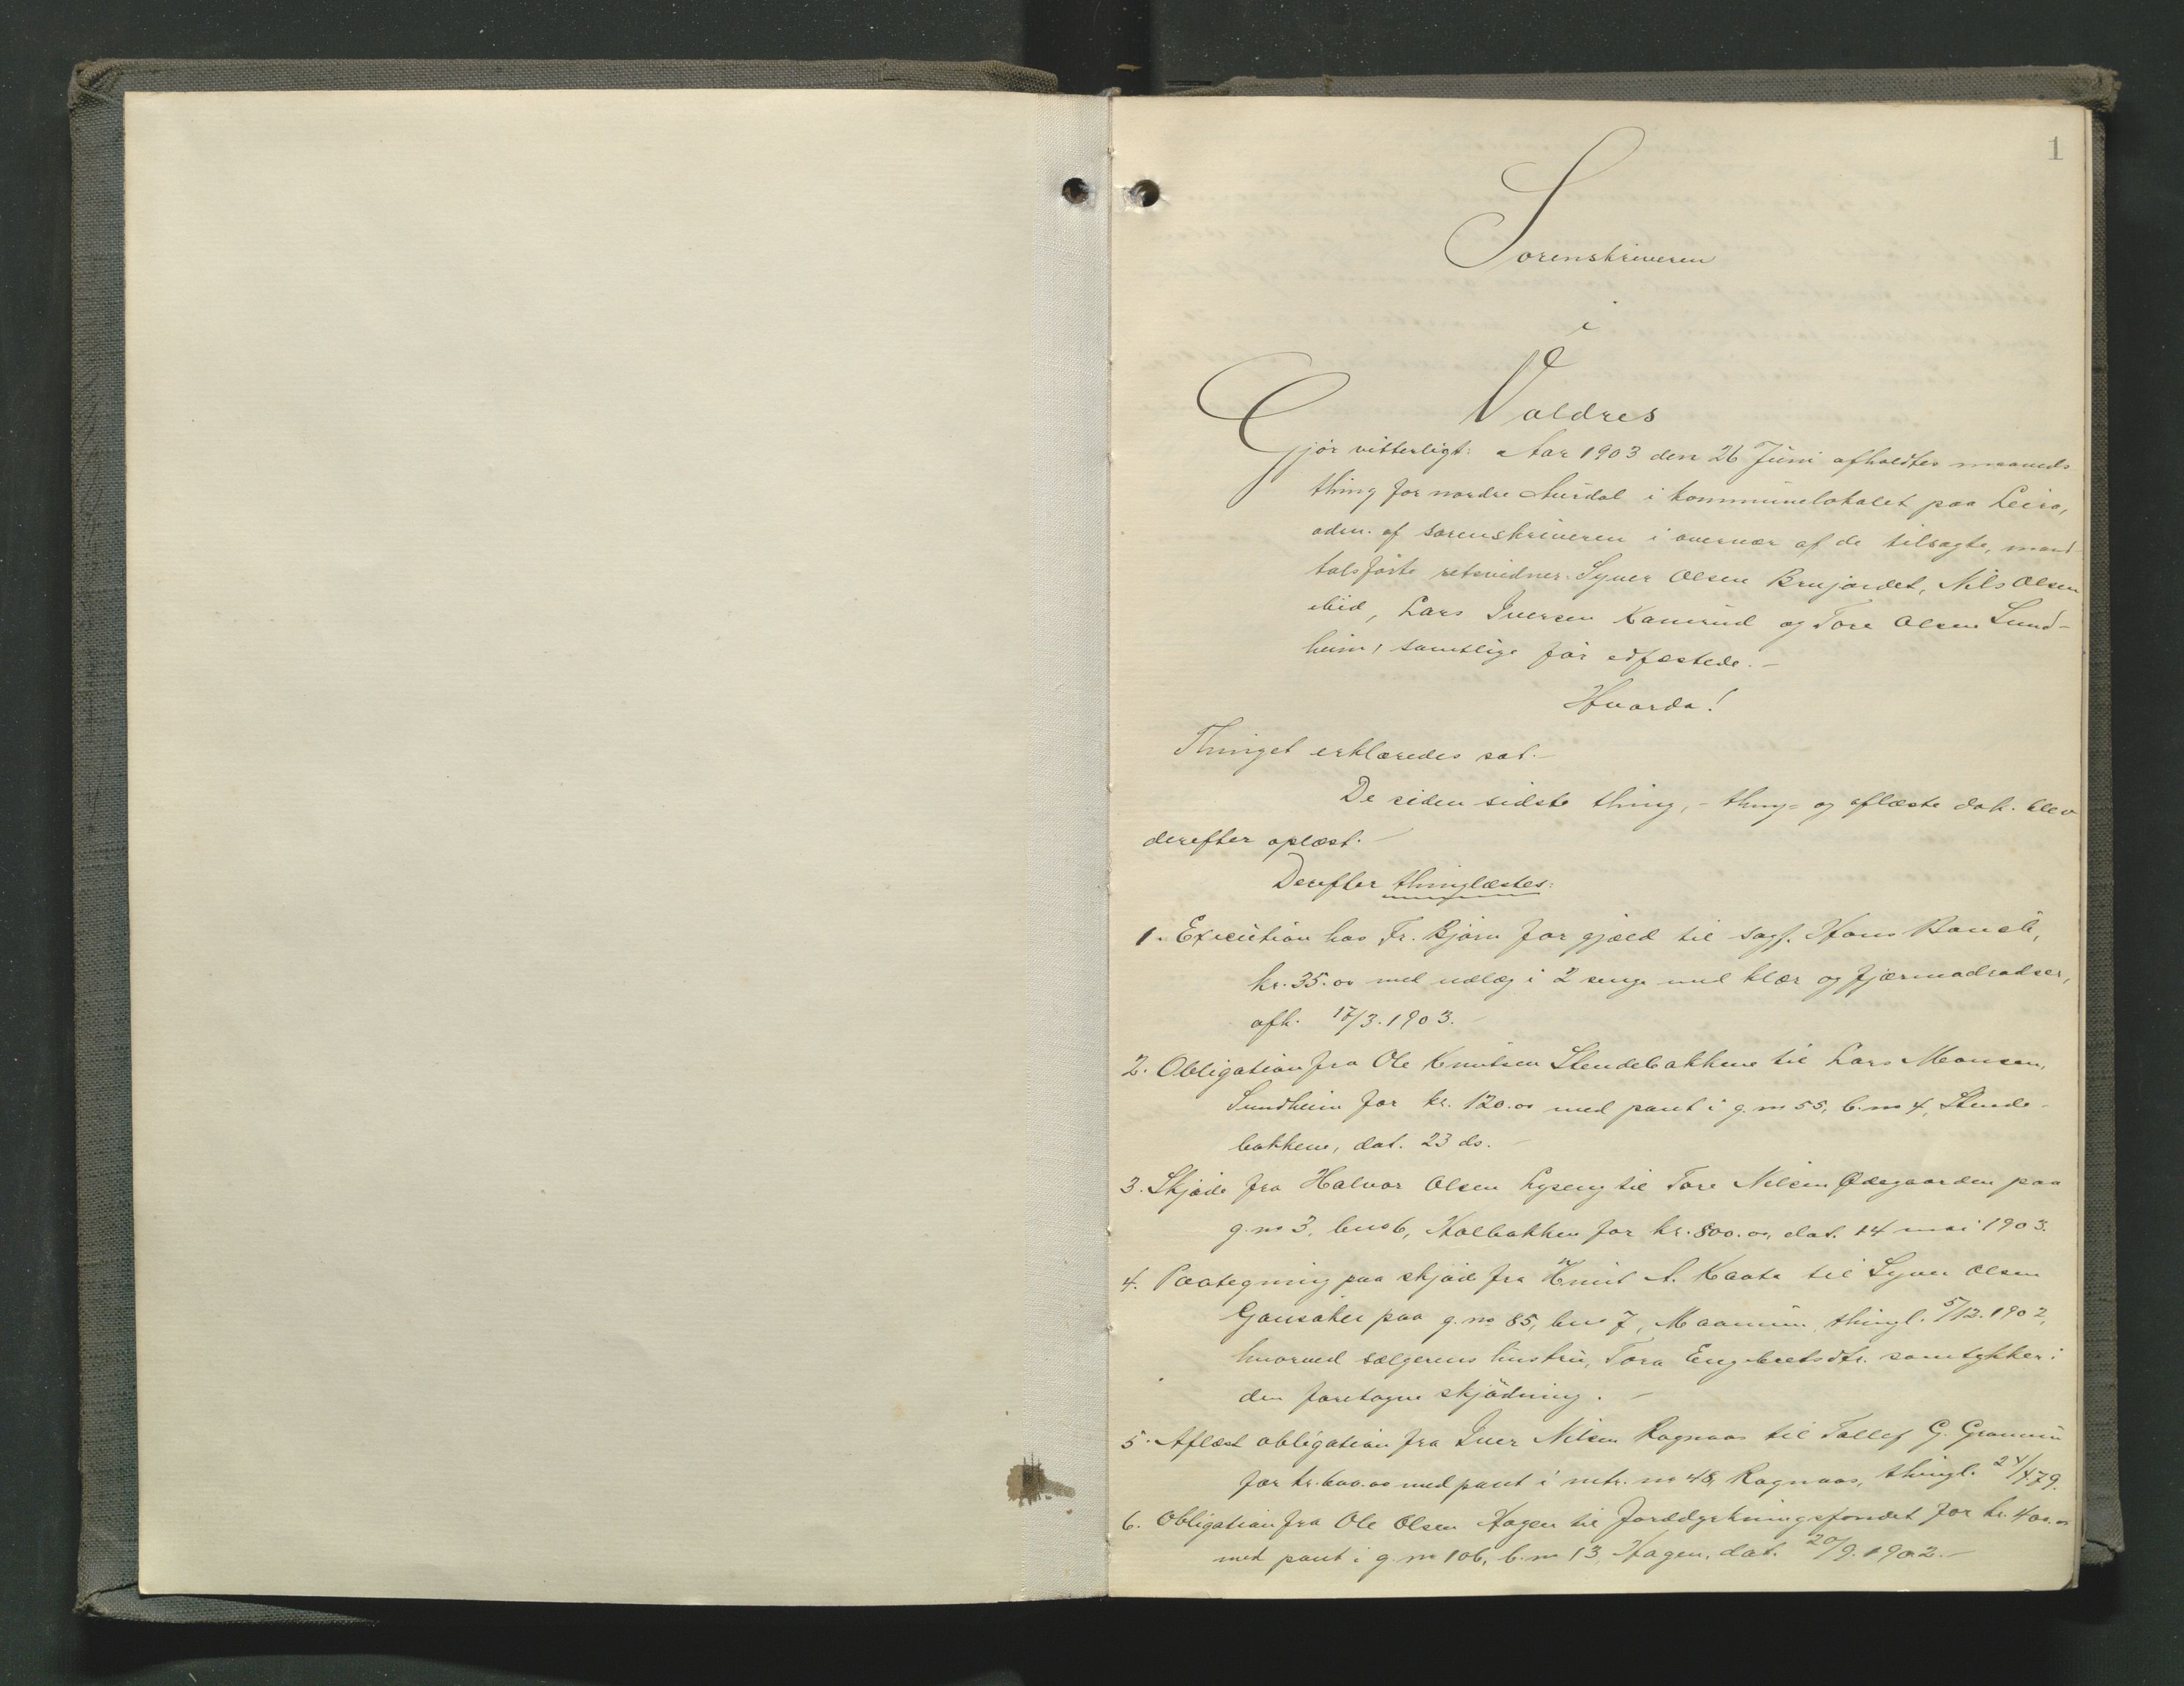 1
Sorenskriveren
i
Valdres
Gjør vitterligt: Aar 1903 den 26 Juni afholdtes maaneds
thing for nordre Aurdal i kommunelokalet paa Leira,
adm. af sorenskriveren i overvær af de tilsagte, mand
talsførte retsvidner Syver Olsen Brujordet, Nils Olsen
ibid, Lars Iversen Kamrud og Tore Olsen Sund-
heim, samtlige før edfæstede. -
Hvorda!
Thinget erklæredes sat. -
De siden sidste thing, - thing- og aflæste dok. blev
derefter oplæst. -
Derefter thinglæstes:
1. Execution hos Fr. Bjørn for gjæld til sagf. Hans
kr. 35.00 med udlæg i 2 senge med klær og fjærmadradser,
afh. 17/3.1903. -
2. Obligation fra Ole Knutsen Stendebakkene til Lars Monsen,
Sundheim for kr. 120.00 med pant i g. no 55, b. no 4, Stende-
bakkene, dat. 23 ds. -
3. Skjøde fra Halvor Olsen Lyseng til Tore Nilsen Ødegaarden paa
g. no 3, b no 6, Kolbakken for kr. 800.00, dat. 14 mai 1903.
4. Paategning paa skjøde fra Knut A. Kaata til Syver Olsen
Gausaker paa g. no 85, b no 7, thingl. 5/12.1902,
hvorved sælgerens hustru, Tora Engebretsdtr. samtykker i
den foretagne skjødning. -
5. Aflæst obligation fra Iver Nilsen Ragnaas til Tollef G. Granum
for kr. 600.00 med pant i mtr. no 48, Ragnaas, thingl. 24/4.79.
6. Obligation fra Ole Olsen Hagen til Jorddyrkningsfondet for kr. 400.00
med pant i g. no 106, b. no 13 Hagen, dat. 20/9.1902. -